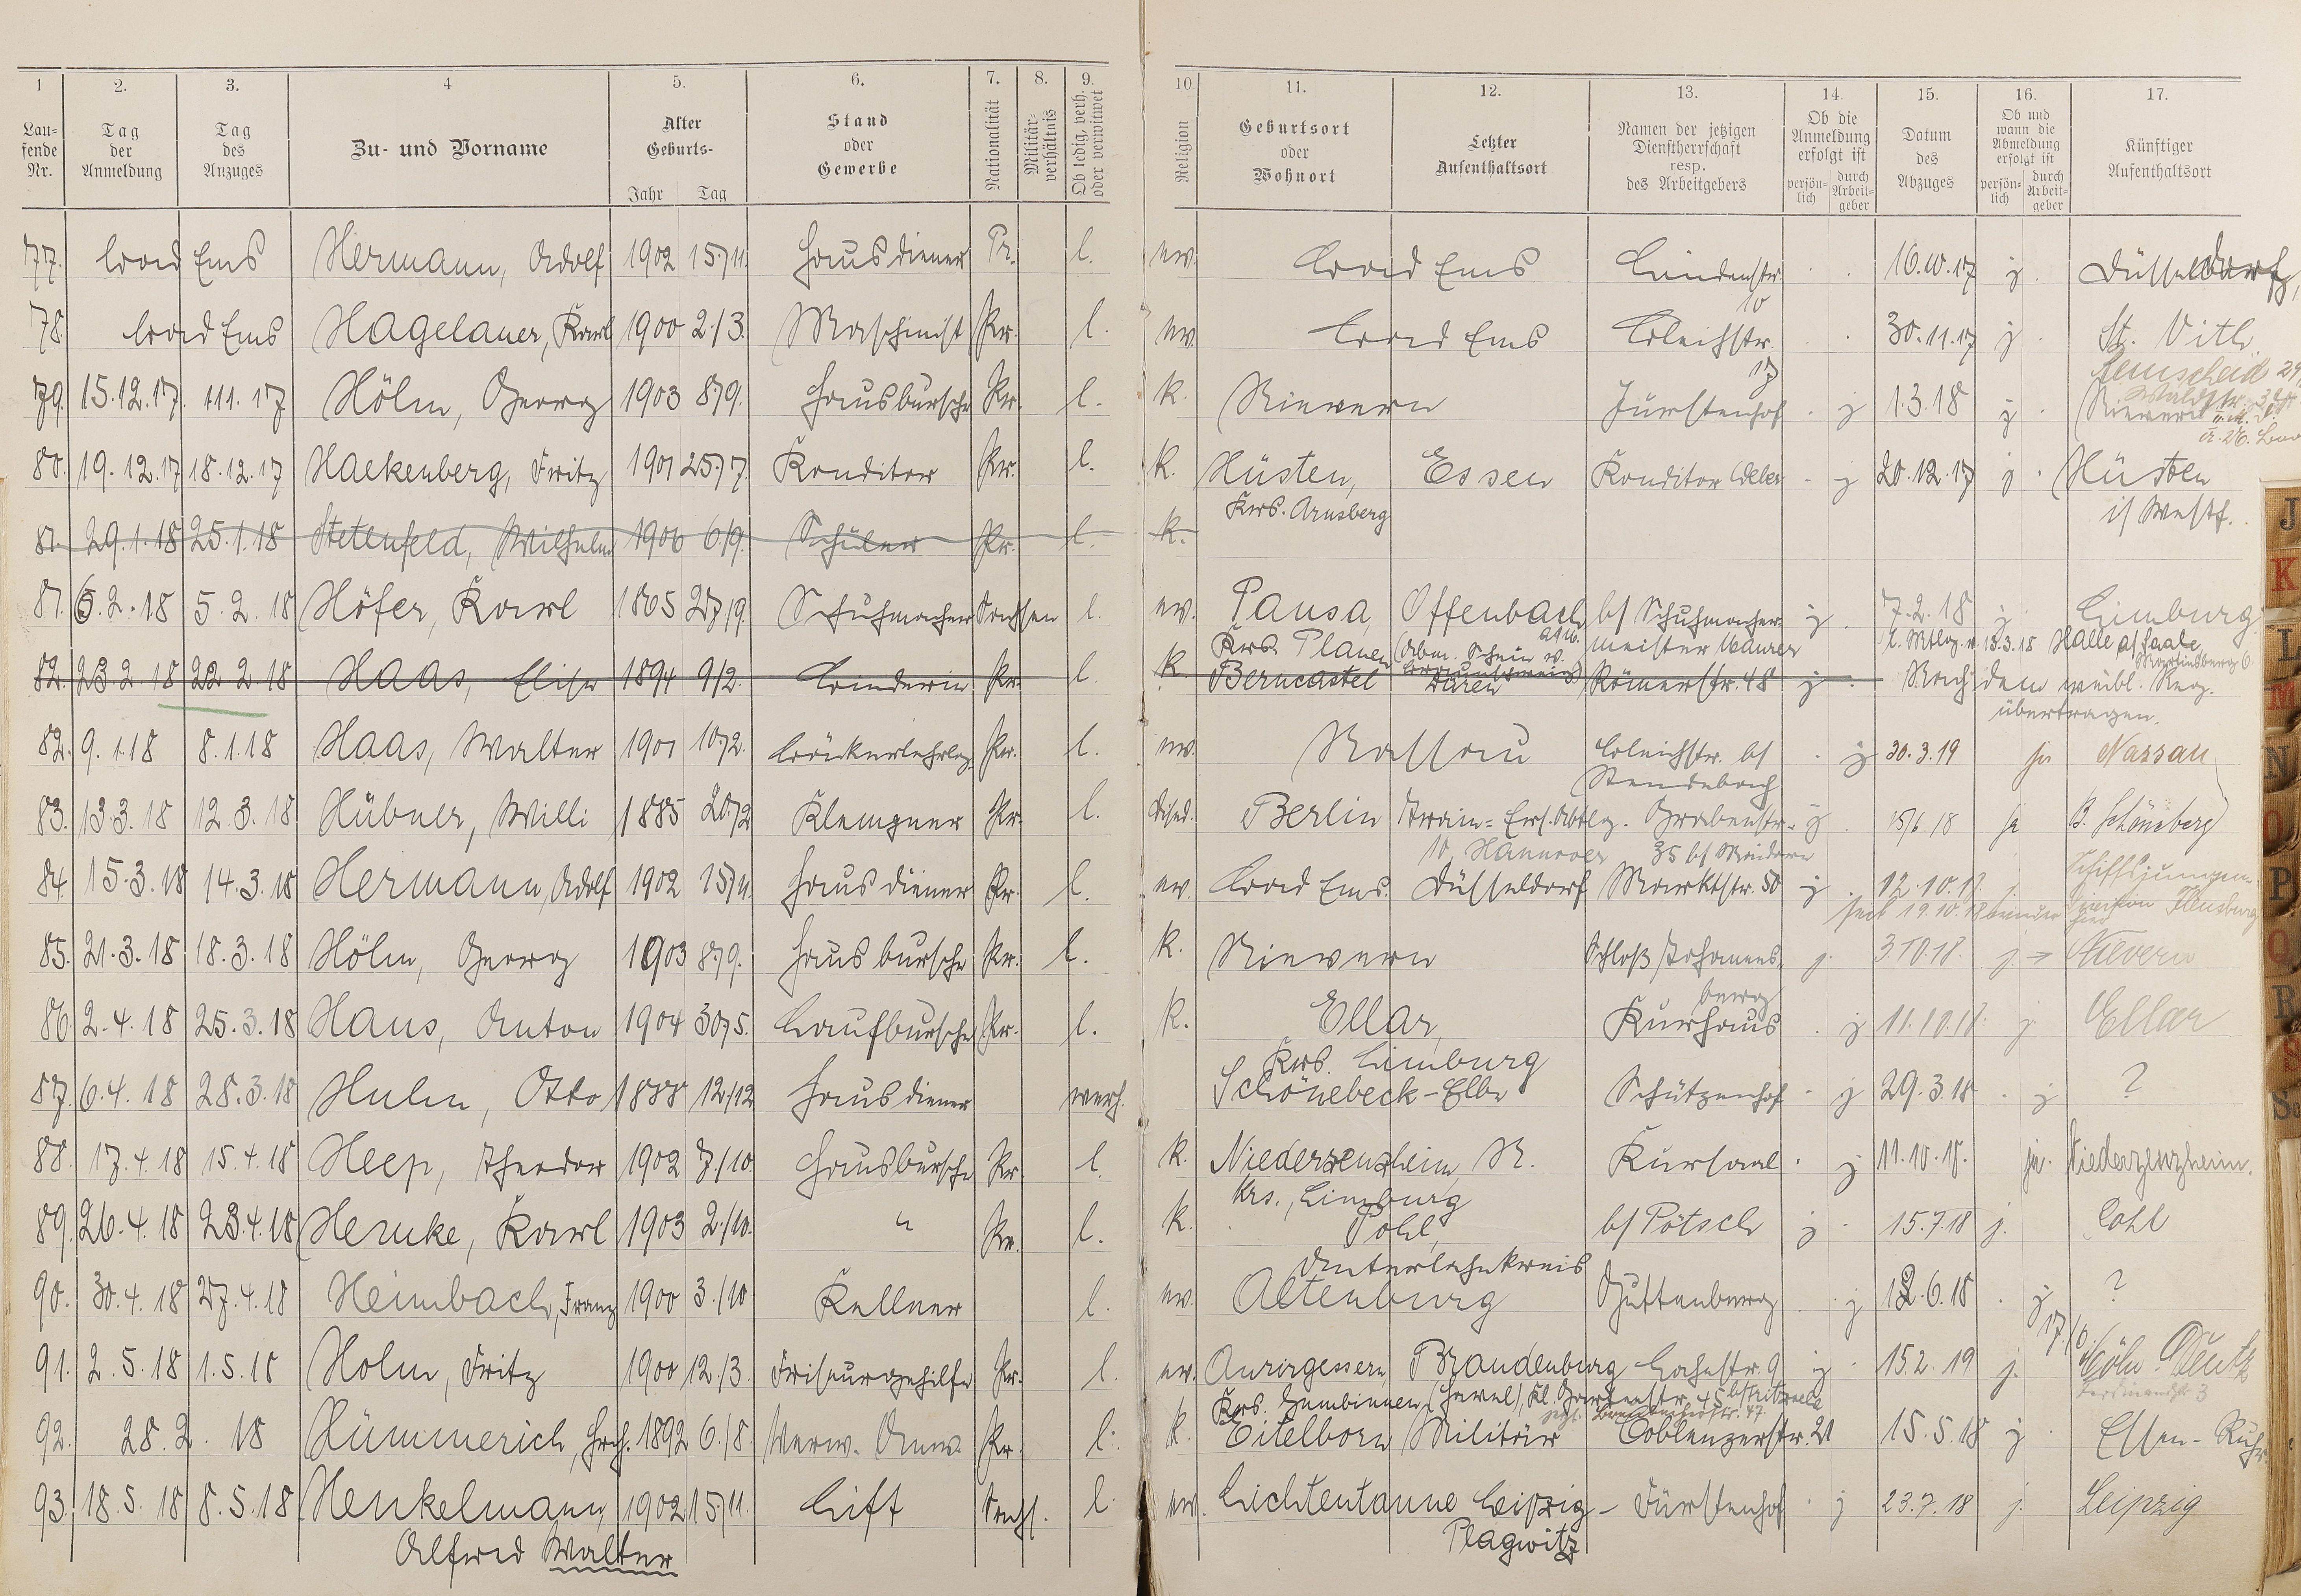 1 2. 3. 4 5. 6. 7. 8. 9. 10 11. 12. 13. 14. 15. 16. 17.
Lau-
fende
Nr.
Tag
der
Anmeldung
Tag
des
Anzuges
Zu- und Vorname
Alter
Geburts-
Jahr Tag
Stand
oder
Gewerbe
Nationalität
Militär-
verhältnis
Ob ledig, verh.
oder verwitwet
Religion
Geburtsort
oder
Wohnort
Letzter
Aufenthaltsort
Namen der jetzigen
Dienstherrschaft
resp.
des Arbeitgebers
Ob die
Anmeldung
erfolgt ist
persön-
lich
durch
Arbeit-
geber
Datum
des
Abzuges
Ob und
wann die
Abmeldung
erfolgt ist
persön-
lich
durch
Arbeit-
geber
Künftiger
Aufenthaltsort
77. Bad Ems Hermann, Adolf 1902 15./11. Hausdiener Pr. l. ev. Bad Ems Lindenstr. 16.10.17 j. Düsseldorf,
10
78. Bad Ems Hagelauer, Karl 1900 2./3. Maschinist Pr. l. ev. Bad Ems Bleichstr. 30.11.17 j. St. Vith
17
79. 15.12.17. 1.11.17 Höhn, Georg 1903 8./9. Hausbursche Pr. l. k. Nievern Fürstenhof j 1.3.18 j. Nievern
80. 19.12.17 18.12.17 Hackenberg, Fritz 1901 25./7. Konditor Pr. l. k. Hüsten, Essen Konditor Weber j 20.12.17 j. Hüsten
Krs. Arnsberg i/ Westf.
81. 29.1.18 25.1.18 Stetenfeld, Wilhelm 1906 6./9. Schüler Pr. l. k.
81. 6.2.18 5.2.18 Höfer, Karl 1865 27./9. Schuhmacher Sachsen l. ev. Pausa, Offenbach b/ Schuhmacher- j. 7.2.18 j. Limburg
Krs. Plauen meister Maurer 13.3.18 Halle a/Saale
82. 23.2.18 22.2.18 Haas, Elise 1894 9./2. Binderin Pr. l. k. Berncastel Düren Römerstr. 48 j. Nach dem weibl. Reg.
übertragen.
82. 9.1.18 8.1.18 Haas, Walter 1901 10./2. Bäckerlehrlg. Pr. l. ev. Nassau Bleichstr. b/ j 30.3.19 ja Nassau
Stendebach
83. 13.3.18 12.3.18 Hübner, Willi 1885 20./2 Klempner Pr. l. Dised. Berlin Train-Ers. Abtlg. Grabenstr. j 15/6 18 ja B. Schöneberg
10, Hannover 35 b/
84. 15.3.18 14.3.18 Hermann, Adolf 1902 15./11. Hausdiener Pr. l. ev. Bad Ems. Düsseldorf Marktstr. 50 j 12.10.17. j. Schiffsjungen-
seit 19.10.18 wieder hier division Flensburg
85. 21.3.18 18.3.18 Höhn, Georg 1903 8./9. Hausbursche Pr. l. k. Nievern Schloß Johannes- j. 3.10.18. j. Nievern
berg
86. 2.4.18 25.3.18 Haus, Anton 1904 30./5. Laufbursche Pr. l. k. Ellar, Kurhaus j 11.10.18. j Ellar
Krs. Limburg
87. 6.4.18 28.3.18 Huhn, Otto 1888 12./12 Hausdiener verh. Schönebeck-Elbe Schützenhof j 29.3.18 j ?
88. 17.4.18 15.4.18 Heep, Theodor 1902 7./10 Hausbursche Pr. l. k. Niederzenzheim, N. Kursaal j 11.10.18. ja. Niederzenzheim.
Krs., Limburg
89. 26.4.18 23.4.18 Hemke, Karl 1903 2./10. " Pr. l. k. Pohl, b/ Pötsch j 15.7.18 j. Pohl
Unterlahnkreis
90. 30.4.18 27.4.18 Heimbach, Franz 1900 3./10 Kellner l. ev. Altenburg Guttenberg j 12.6.18 j ?
91. 2.5.18 1.5.18 Holm, Fritz 1900 12./3. Friseurgehilfe Pr. l. ev. Brandenburg Lahnstr. 9 j 15.2.19 j. Köln-Deutz
Krs. Gumbinnen (Havel), Kl. Gartenstr. 45
92. 28.2.18 Hümmerich, Hrch. 1892 6./8. Verw. Anw. Pr. l. k. Eitelborn Militär Coblenzerstr. 21 15.5.18 j Essen-Ruhr
93. 18.5.18 8.5.18 Henkelmann, 1902 15./11. Lift Sachs. l. ev. Lichtentanne Leipzig- Fürstenhof j 23.7.18 j. Leipzig
Alfred Walter Plagwitz
J
K
L
M
N
O
P
Q
R
S